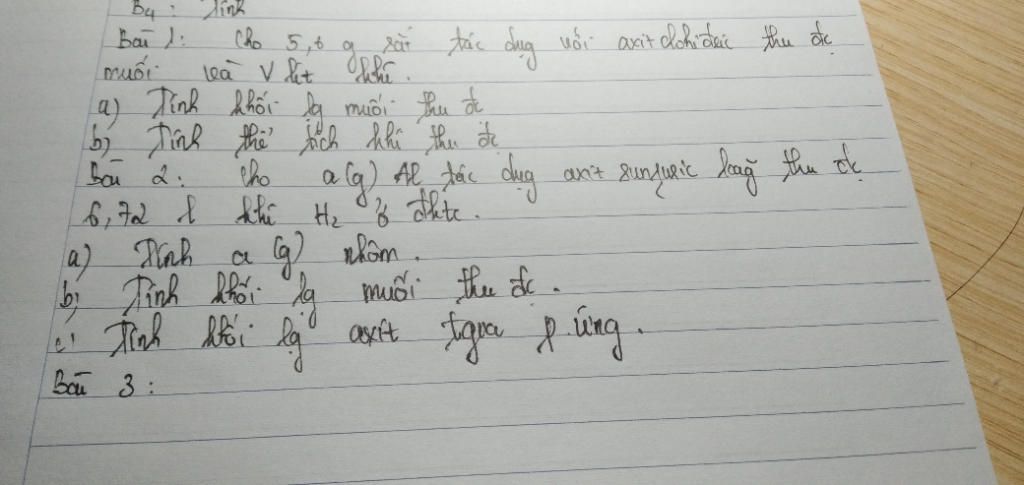 B4: Tính
Bài 1: Cho 5,6 g sắt tác dụg với axit clohiđric thu đc
muối và V lít khí.
a) Tính khối lg muối thu đc
b) Tính thể tích khí thu đc
Bài 2: Cho a(g) Al tác dụg axit sunfuric loãg thu đc
6,72 l khí H2 ở đktc.
a) Tính a (g) nhôm.
b) Tính khối lg muối thu đc.
c) Tính khối lg axít tgia p ứng.
Bài 3: